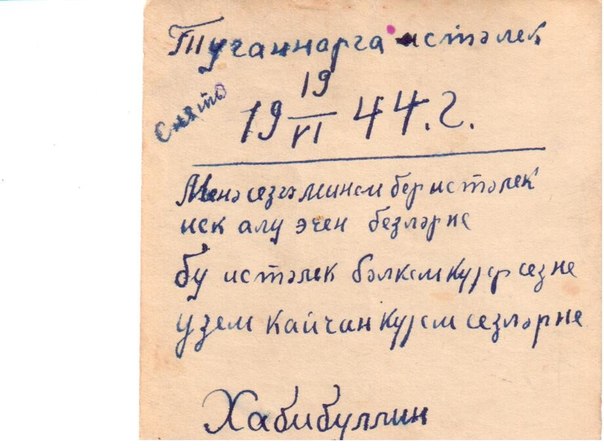 Туганнарга истәлек
Снято
19 19/VI 44.г.
Менә сезгә минем бер истәлек
иск алу эчен безләрне
бу истәлек бәлкем күрер сезне
үзем кайчан күрем сезләрне
Хабибуллин